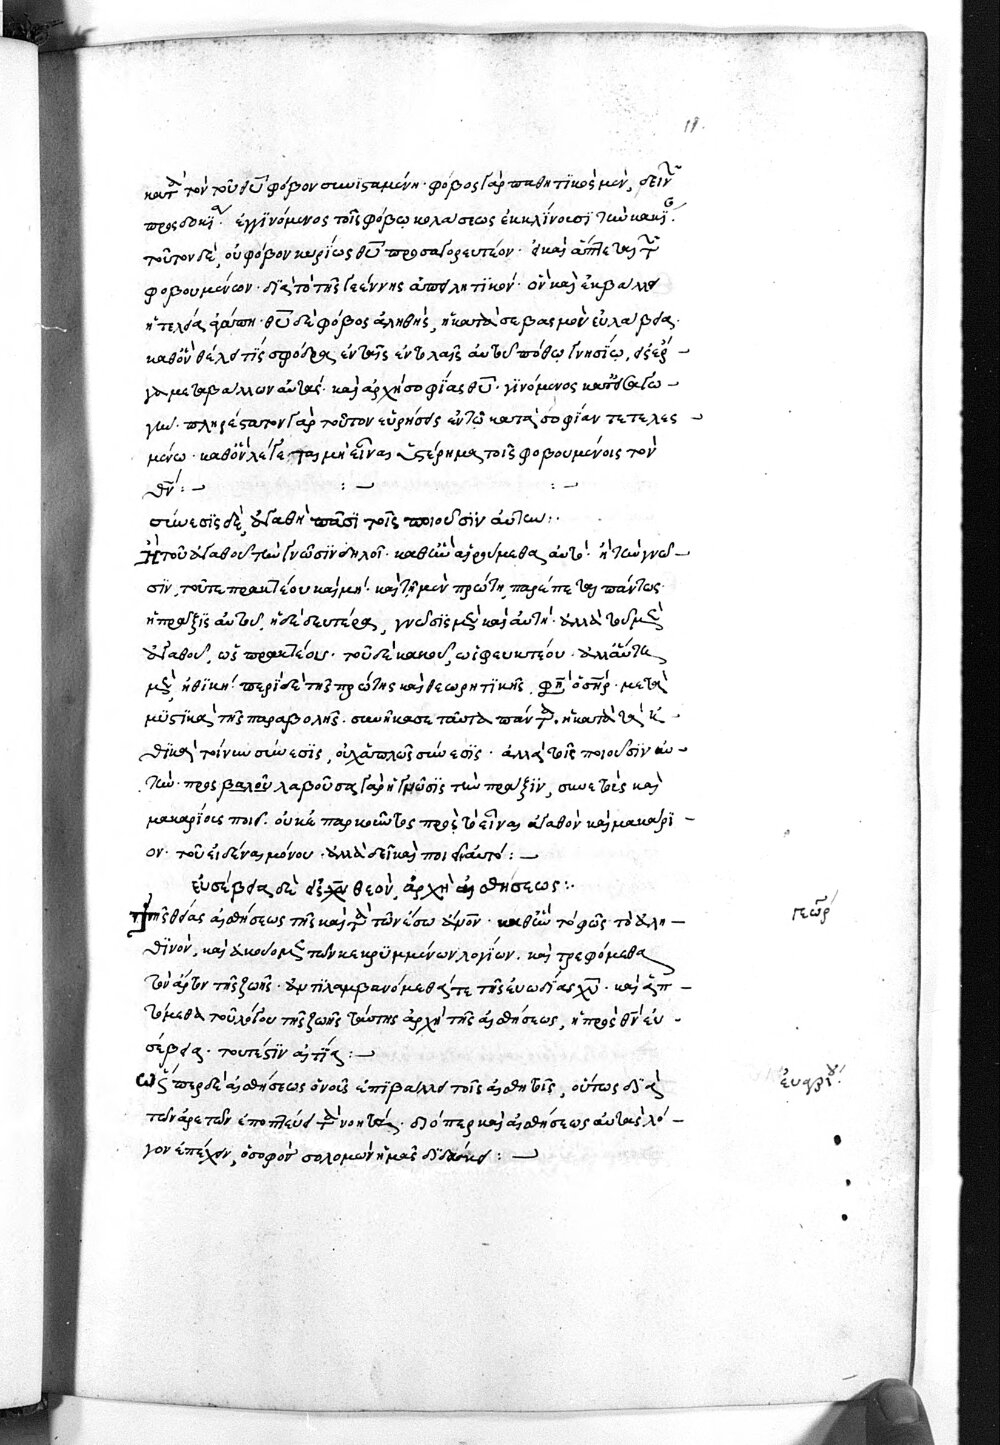 18.
κατὰ τὸν τοῦ θῦ φόβον συνϊσαμένη · φόβος γὰρ παθητϊκὸς μὲν, δεινῶν
προσδοκϊ ἐγγϊνόμενος τοῖς φόβῳ κολάσεως ἐκκλίνουσϊ τὴν κακϊ
τοῦτον δὲ, οὐ φόβον κυρίως θῦ προσαγορευτέον · καὶ ἅπτεται τῶν
φοβουμένων · διὰ τὸ τῆς γεέννης ἀπειλητϊκόν · ὃν καὶ ἐκβάλλει
ἡ τελεία ἀγάπη · θῦ δὲ φόβος ἀληθὴς, ἡ κατὰ σέβας μόνον εὐλάβεια ·
καθ' ὃν θέλει τὶς σφόδρα ἐν ταῖς ἐντολαῖς αὐτοῦ πόθῳ γνησίῳ,
μεταβάλλων αὐτάς · καὶ ἀρχὴ σοφίας θῦ · γϊνόμενος
πληρέστατον γὰρ τοῦτον εὑρήσεις ἐν τῷ κατὰ σοφίαν τετελεσ –
μένω · καθ' ὃν λέγεται μὴ εἶναι ὑστέρημα τοῖς φοβουμένοις τὸν
θν̄ : –
σύνεσϊς δὲ, ἀγαθὴ πᾶσϊ τοῖς ποιοῦσϊν αὐτήν :·
Ἢ τοῦ ἀγαθοῦ τὴν γνῶσϊν δηλοῖ · καθ' ἣν αἱρούμεθα αὐτό · ἢ τὴν γνῶ –
σϊν, τοῦ τε πρακτέου καὶ μή · καὶ τῇ μὲν πρώτη, παρέπεται πάντως
ἡ πρᾶξϊς αὐτοῦ, ἡ δὲ δευτέρα, γνῶσϊς μὲν καὶ αὐτὴ · ἀλλὰ τοῦ μὲν
ἀγαθοῦ, ὡς πρακτέου · τοῦ δὲ κακοῦ, ὡς φευκτέου · ἀλλ' αὕτη
μὲν, ἠθϊκή · περὶ δὲ τῆς πρώτης καὶ θεωρητϊκῆς, φη ὁ σηρ · μετὰ
μϋστϊκὰς τῆς παραβολῆς · συνήκατε ταῦτα πάντα · ἡ κατὰ τὰ
τοίνυν σύνεσϊς, οὐχ ἁπλῶς σύνεσϊς · ἀλλὰ τοῖς ποιοῦσϊν αὐ –
τήν · προσλαβοῦσα γὰρ ἡ γνῶσϊς τὴν πρᾶξϊν, συνετοὺς καὶ
μακαρίους ποιεῖ · οὐκ ἐπαρκοῦντος πρὸς τὸ εἶναι ἀγαθὸν καὶ μακάρϊ –
ον · τοῦ εἰδέναι μόνου · ἀλλὰ δεῖ καὶ ποιεῖν αὐτό : –
εὐσέβεια δὲ εἰς θεὸν, ἀρχὴ αἰσθήσεως :·
Τῆς θείας αἰσθήσεως τῆς κατὰ τὸν ἔσω ἄνον · καθ' ἣν τὸ φῶς τὸ ἀλη –
θϊνὸν, καὶ ἀκούομεν τῶν κεκρϋμμένων λογίων · καὶ τρεφόμεθα
τὸν ἄρτον τῆς ζωῆς · ἀντϊλαμβανόμεθά τε τῆς εὐωδίας χῦ · καὶ ἁπ –
τόμεθα τοῦ λόγου τῆς ζωῆς ταύτης ἀρχὴ τῆς αἰσθήσεως, ἡ πρὸς θν̄ εὐ –
σέβεια · τουτέστϊν αἰτϊα : –
Ὥσπερ δὲ αἰσθήσεως ὁ νοῦς ἐπϊβάλλει τοῖς αἰσθητοῖς, οὕτως δϊὰ
τῶν ἀρετῶν ἐποπτεύει τὰ νοητά · διόπερ καὶ αἰσθήσεως αὐτὰς λό –
γον ἐπέχειν, ὁ σοφὸς σολομὼν ἡμᾶς δϊδάσκει : –
γεωρ
εὐαγρίου